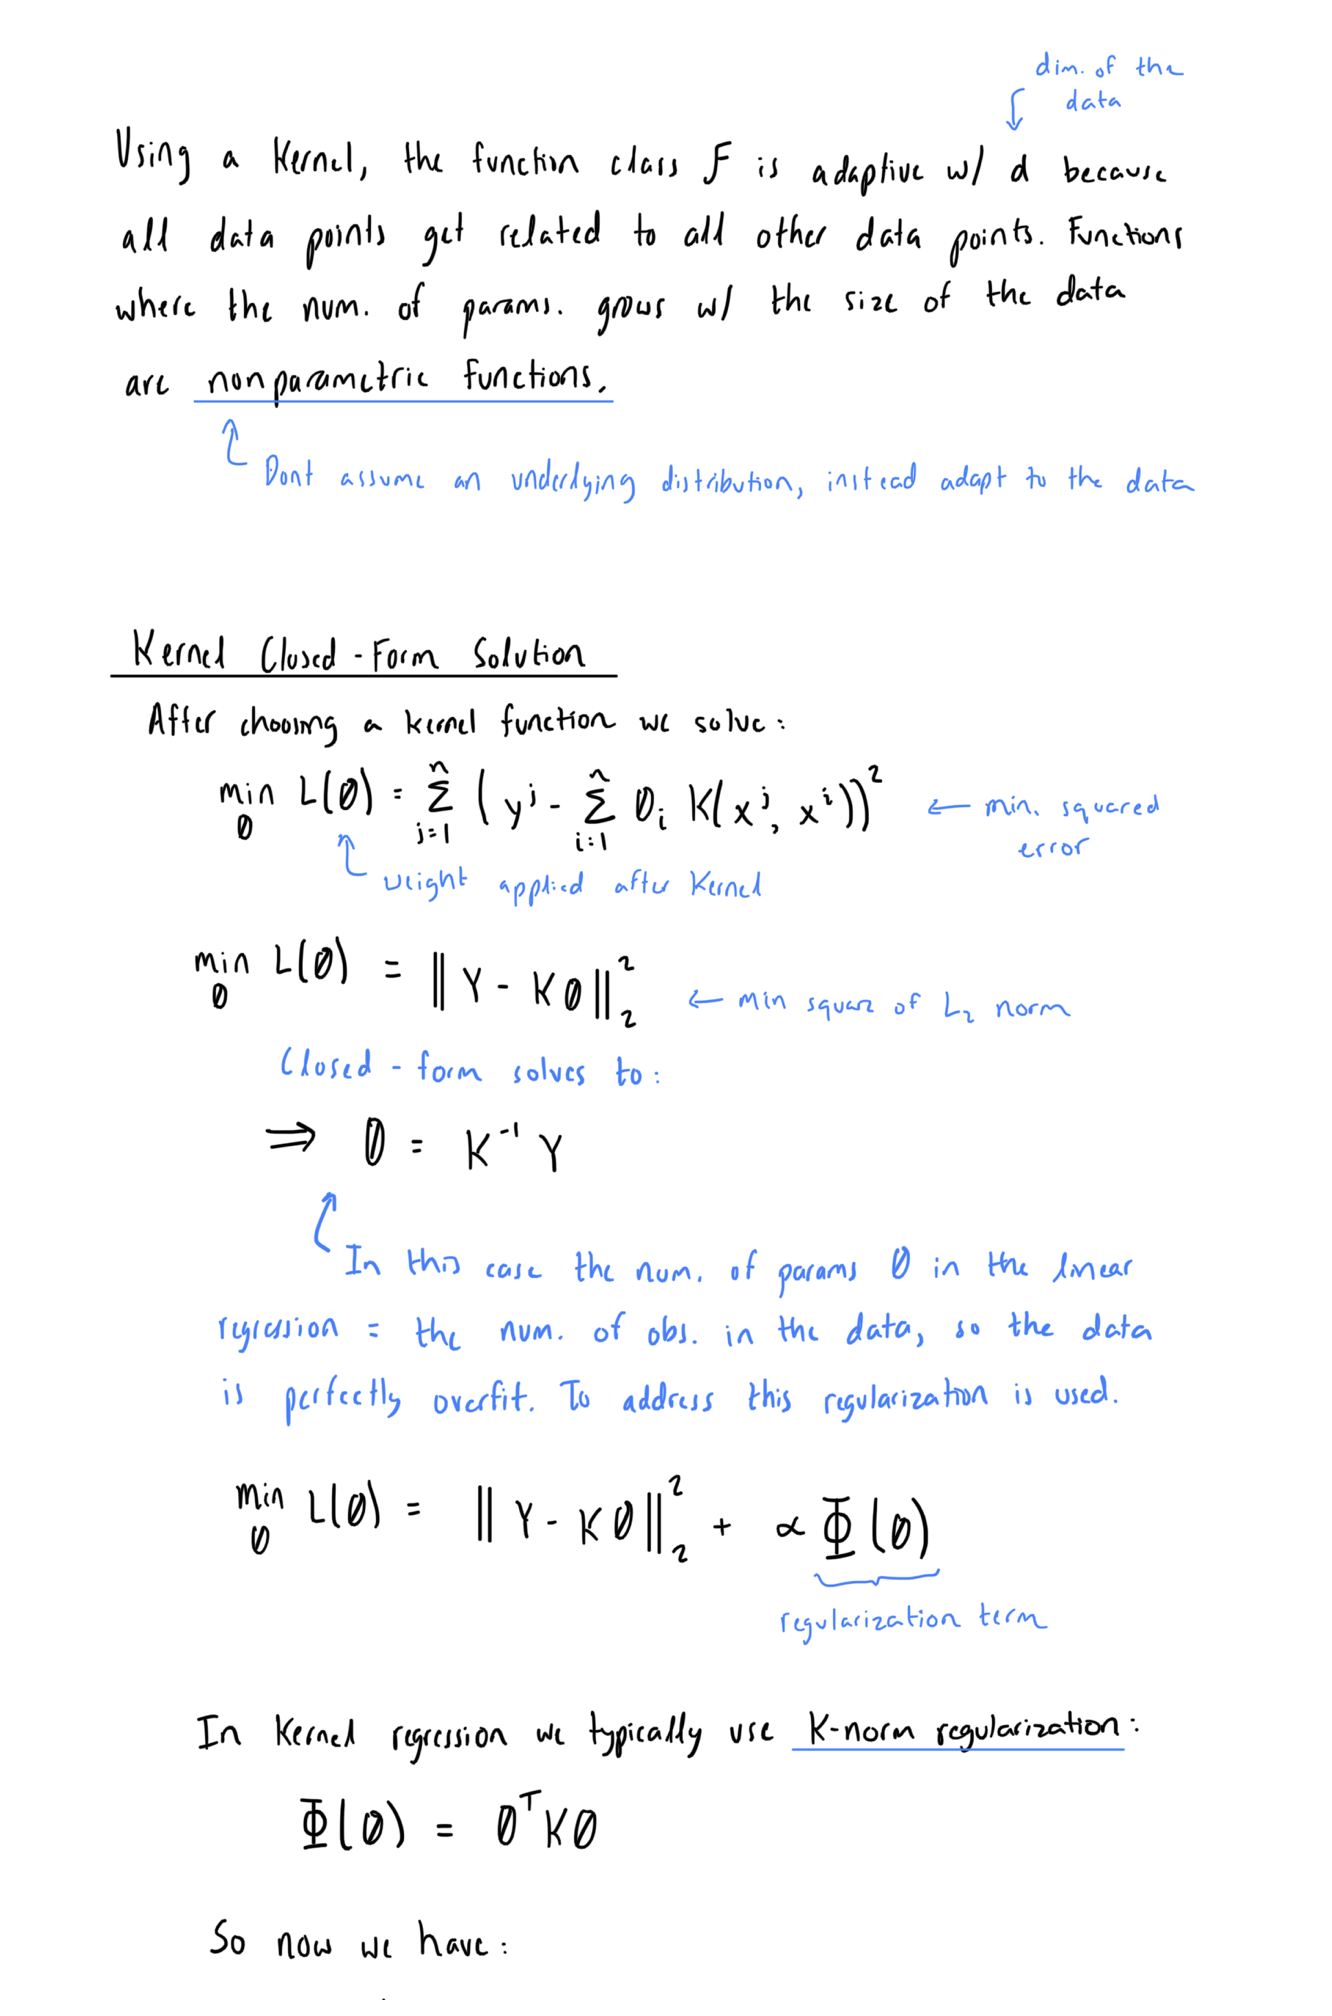 dim. of the
data
Using a Kernel, the function class F is adaptive w/ d because
all data points get related to all other data points. Functions
where the num. of params. grows w/ the size of the data
are nonparametric functions.
Dont assume an underlying distribution, instead adapt to the data
Kernel Closed-Form Solution
After choosing a kernel function we solve:
min_θ L(θ) = Σ_{j=1}^{n} (y^j - Σ_{i=1}^{n} θ_i K(x^j, x^i))^2 ← min. squared
error
weight applied after Kernel
min_θ L(θ) = ||Y - Kθ||_2^2 ← min square of L_2 norm
Closed-form solves to:
⇒ θ = K^{-1} Y
In this case the num. of params θ in the linear
regression = the num. of obs. in the data, so the data
is perfectly overfit. To address this regularization is used.
min_θ L(θ) = ||Y - Kθ||_2^2 + α Φ(θ)
regularization term
In Kernel regression we typically use K-norm regularization:
Φ(θ) = θ^T K θ
So now we have: